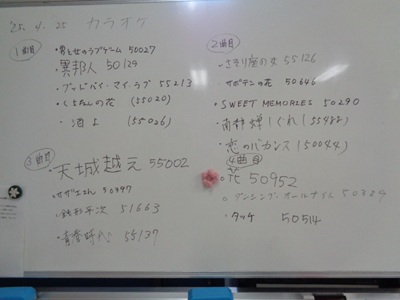 '25. 4. 25 カラオケ
1曲目
・男と女のラブゲーム 50027
・異邦人 50129
・グッドバイ・マイ・ラブ 55213
・くちなしの花 (55020)
・酒よ (55026)
2曲目
・さそり座の女 55126
・サボテンの花 50646
・SWEET MEMORIES 50290
・恋のバカンス (50044)
3曲目
・天城越え 55002
・サザエさん 50997
・銭形平次 51663
・青春時代 55137
4曲目
・花 50952
・ダンシング・オールナイト
・タッチ 50514